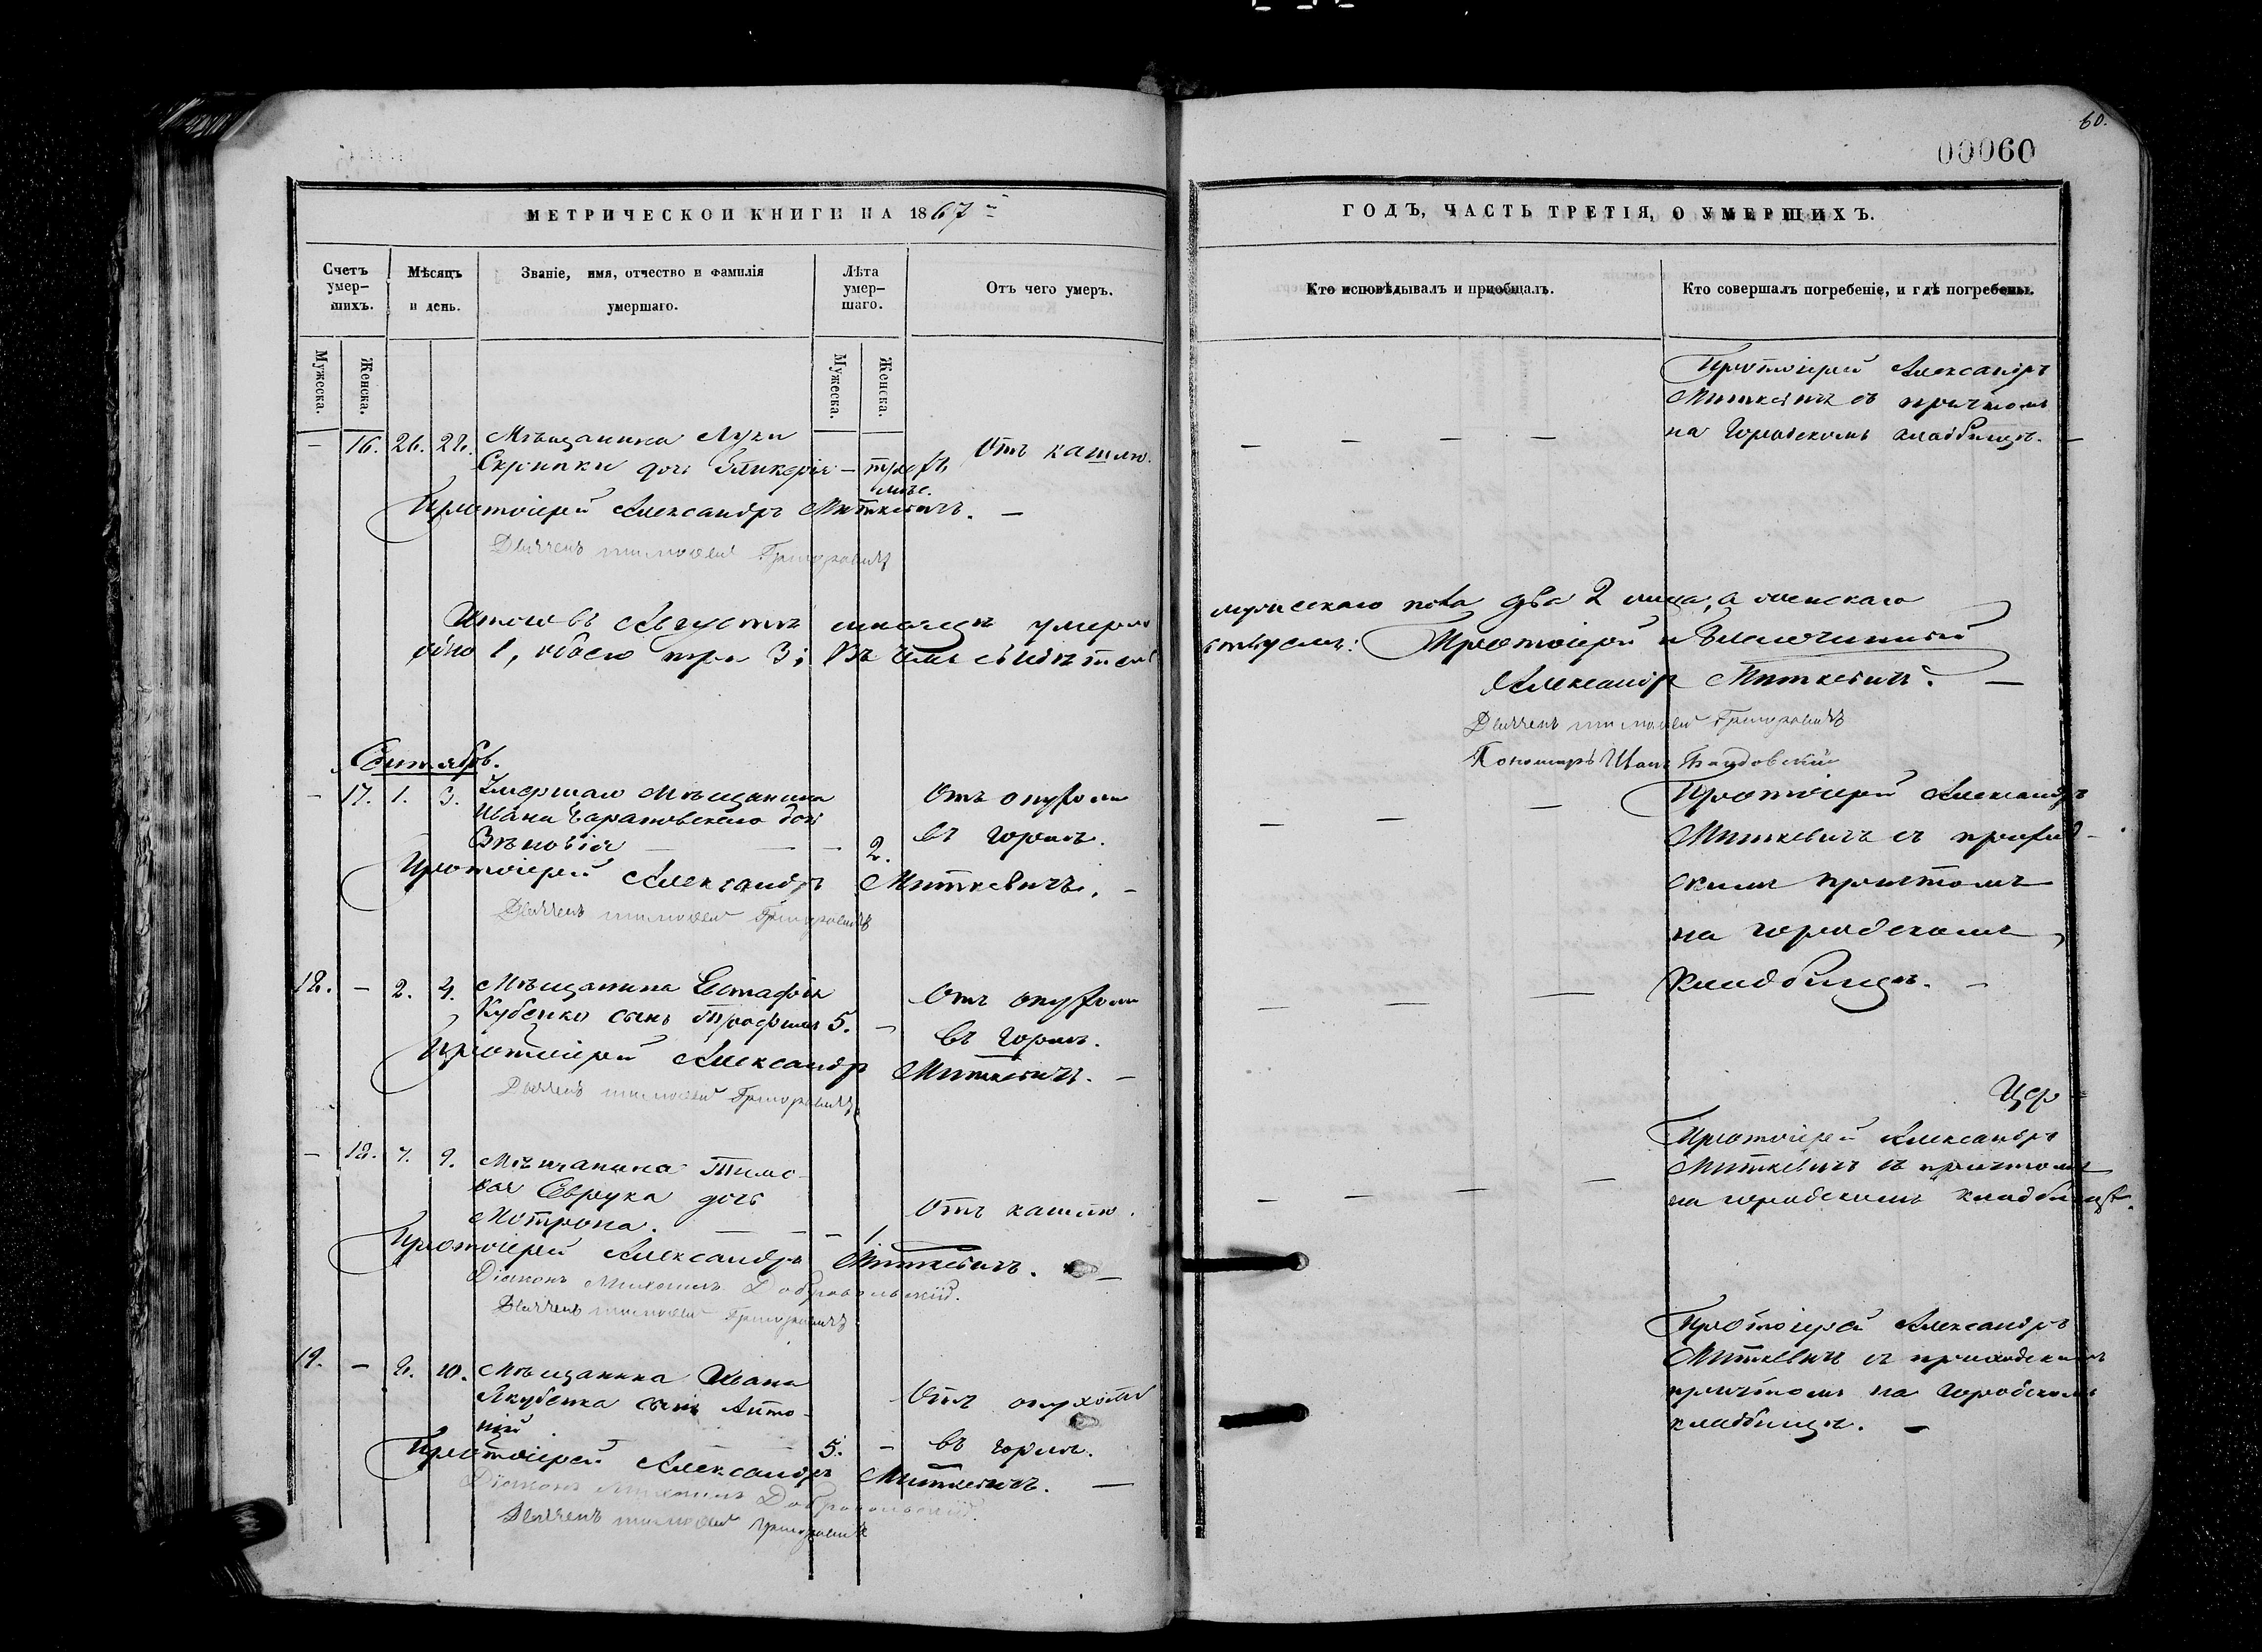 60.
00060
МЕТРИЧЕСКОЙ КНИГИ НА 1867
Счетъ умер-
шихъ.
Мѣсяцъ
и день.
Званіе, имя, отчество и фамилія
умершаго.
Лѣта
умер-
шаго.
Отъ чего умеръ.
Мужеска.
Женска.
Мужеска.
Женска.
– 16. 26. 28. Мѣщанина Луки
Скрипки дочь Гликерія – трехъ Отъ кашлю.
мѣс.
Протоіерей Александръ Миткевичъ. –
Дьячекъ Тимофей Григоровичъ
Итого въ Августѣ мѣсяцѣ умерло
одно 1, обоего три 3; Въ чемъ свидѣтель
Сентябрь.
– 17. 1. 3. Умершаго мѣщанина Отъ опухоли
Ивана дочь
Зѣновія – – – 2. въ горлѣ.
Протоіерей Александръ Миткевичъ. –
Дьячекъ Тимофей Григоровичъ
18. – 2. 4. Мѣщанина Евстафія Отъ опухоли
Кубенко сынъ Трофимъ 5. – въ горлѣ.
Протоіерей Александръ Миткевичъ. –
Дьячекъ Тимофей Григоровичъ
– 18. 7. 9. Мѣщанина Тимо-
фея дочь
Мотрона. – – – 1. Отъ кашлю.
Протоіерей Александръ Миткевичъ. –
Діаконъ Михаилъ Добровольскій.
Дьячекъ Тимофей Григоровичъ
19. – 8. 10. Мѣщанина Ивана
Якубенка сынъ Анто- Отъ опухоли
ній 5. – въ горлѣ.
Протоіерей Александръ Миткевичъ. –
Діаконъ Михаилъ Добровольскій.
Дьячекъ Тимофей Григоровичъ
ГОДЪ, ЧАСТЬ ТРЕТІЯ, О УМЕРШИХЪ.
Кто исповѣдывалъ и пріобщалъ.
Кто совершалъ погребеніе, и гдѣ погребены.
Протоіерей Александръ
Миткевичъ съ причтомъ
на Городскомъ кладбищѣ. –
мужескаго пола два 2 лица, а женскаго
ствуемъ: Протоіерей и Благочинный
Александръ Миткевичъ. –
Дьячекъ Тимофей Григоровичъ
Пономарь Иванъ
Протоіерей Александръ
Миткевичъ съ приход-
скимъ причтомъ
на городскомъ
кладбищѣ. –
Цер
Протоіерей Александръ
Миткевичъ съ причтомъ
на городскомъ кладбищѣ.
Протоіерей Александръ
Миткевичъ съ приходскимъ
причтомъ на Городскомъ
кладбищѣ. –